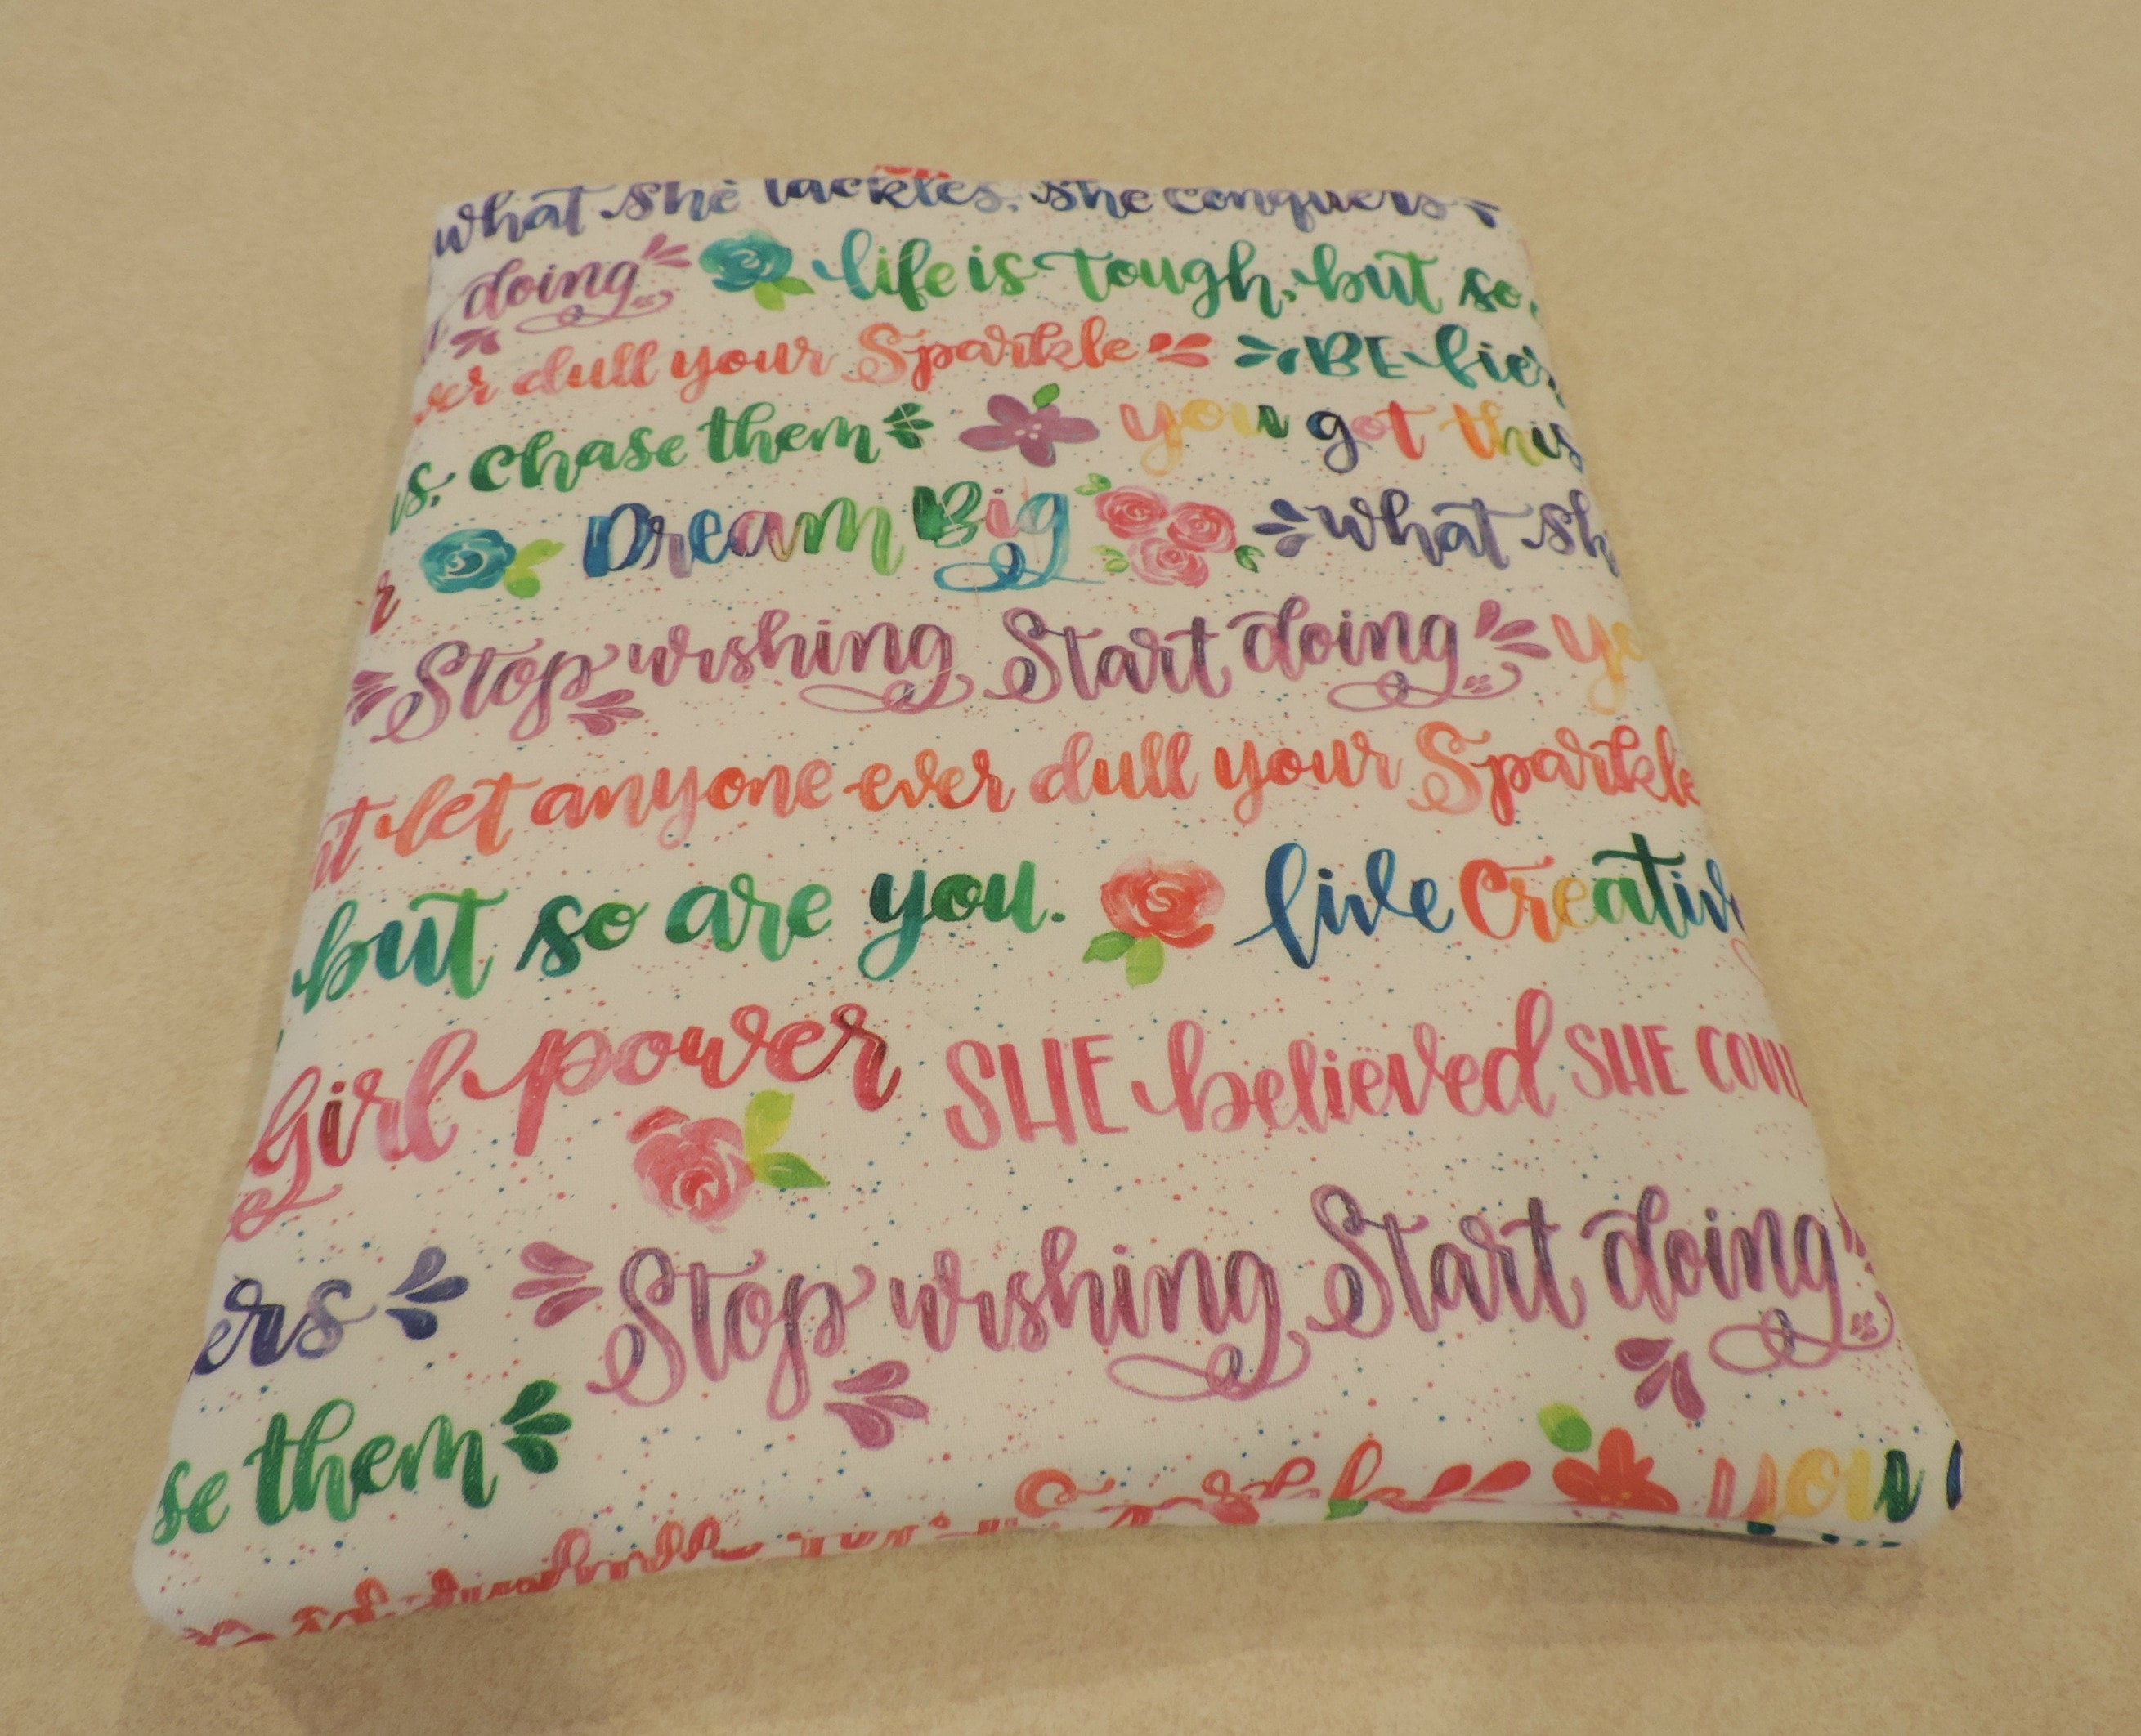 what she tackles, she conquers
doing life is tough, but so
er dull your Sparkle BE fier
s, chase them you got this
Dream Big what sh
r Stop wishing Start doing yo
t let anyone ever dull your Sparkle
but so are you. live Creativ
girl power SHE believed SHE COUL
ers Stop wishing Start doing
se them
you